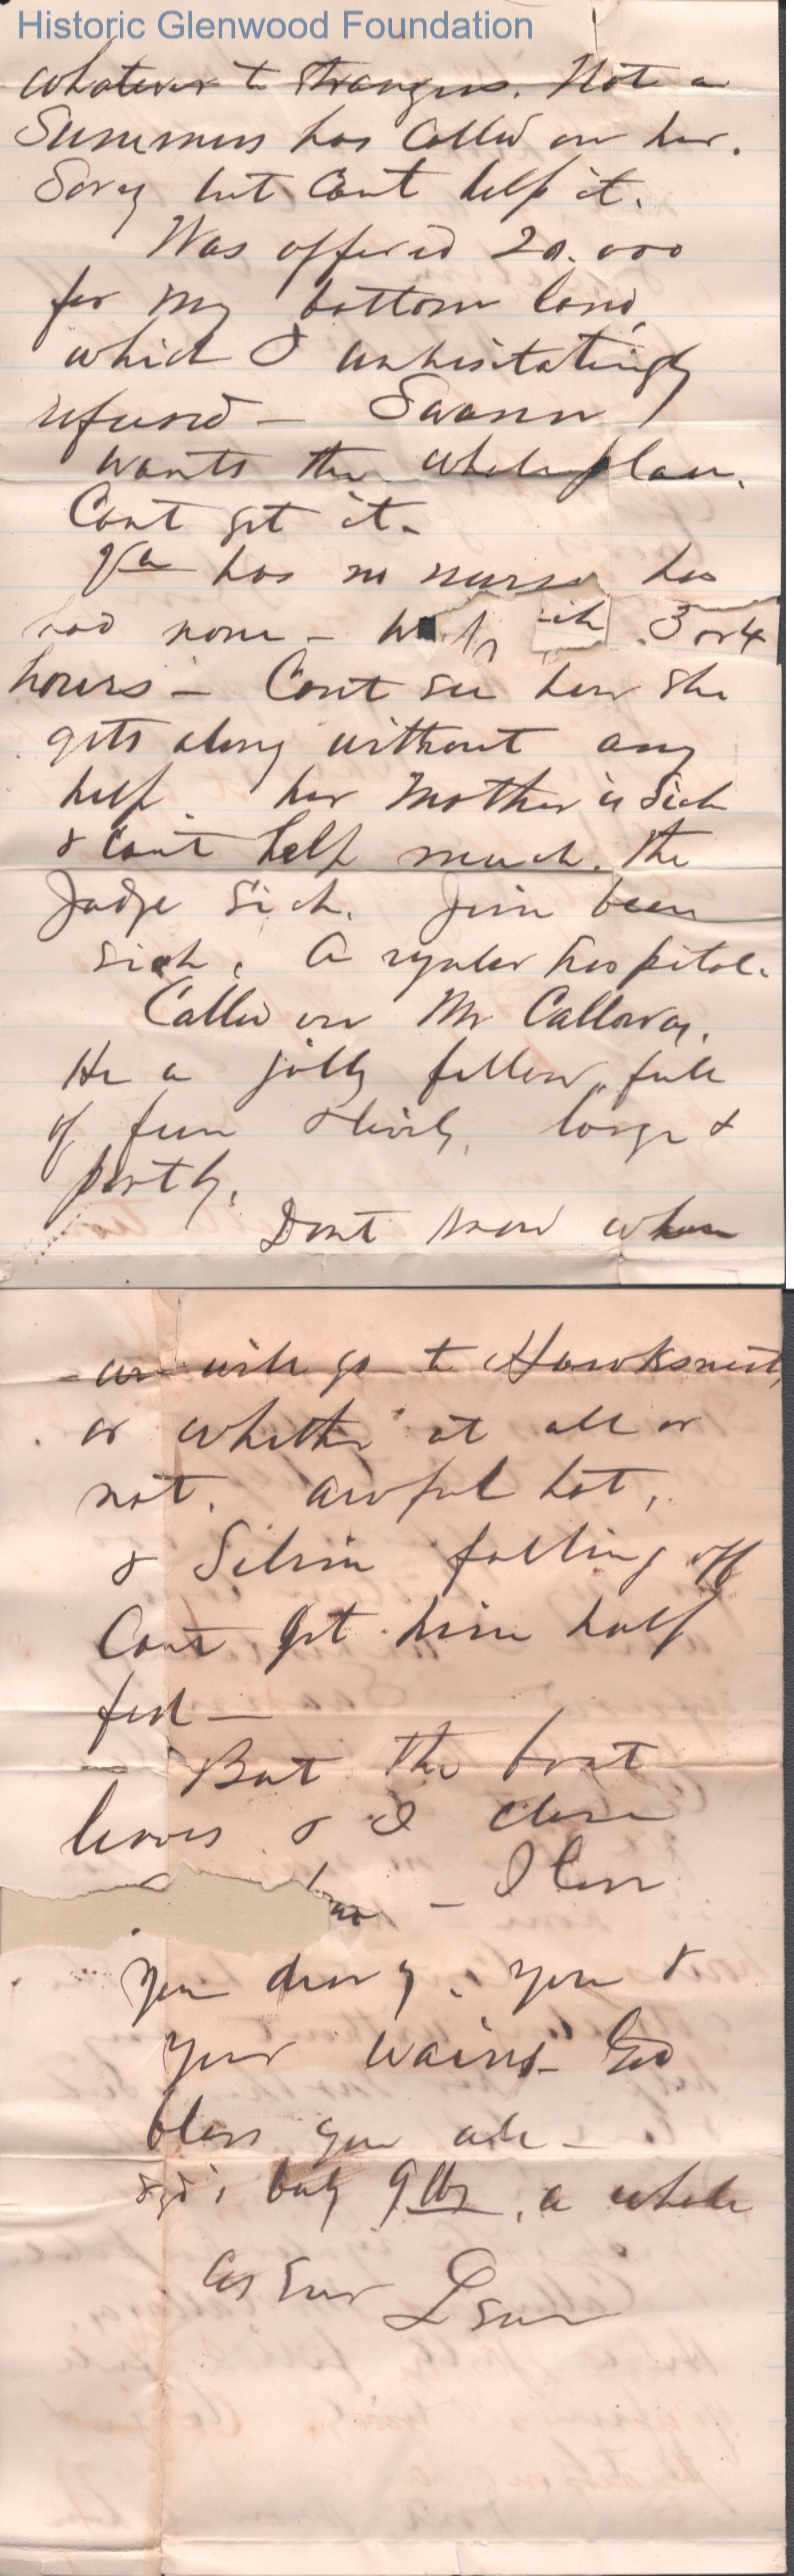 Historic Glenwood Foundation
whatever to strangers. Not a
Summers has called on her.
Sorry but Cant help it.
Was offered 20.000
for my bottom land,
which I unhesitatingly
refused — Swann
wants the whole place.
Cant get it —
Va has no nurse has
had none — 3 or 4
hours — Cant see how she
gets along without any
help. her Mother is sick
& cant help much. The
Judge sick. Jim been
sick. A regular hospital.
Called on Mr Calloway.
He a jolly fellow, full
of fun & lively, large &
portly.
Dont know when
will go to Hawksnest,
or whether at all or
not. awful hot,
& falling off
Cant get him half
fed —
But the boat
leaves & I close
— I love
you dearly. you &
your wains — God
bless you all —
baby 9 lbs, a whale
as Ever